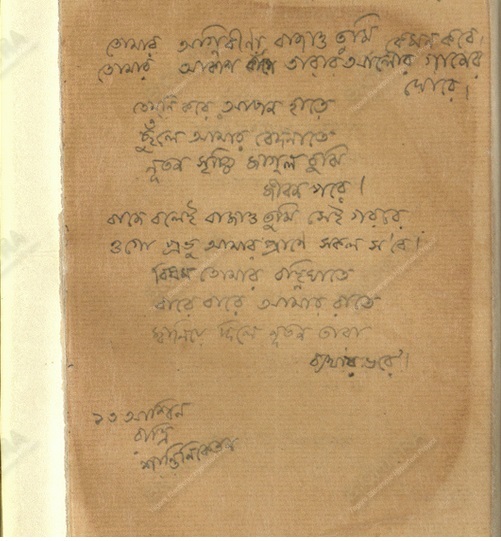 তোমার অগ্নিবীণা বাজাও তুমি কেমন করে।
তোমার আকাশ কাঁপে তারার আলোর গানের
ঘোরে।
তেমনি করে আপন হাতে
ছুঁলে আমার বেদনাতে
নূতন সৃষ্টি জাগল বুঝি
জীবন পরে।
বাজে বলেই বাজাও তুমি সেই গরবে
ওগো প্রভু আমার প্রাণে সকল স'বে।
বিষম তোমার বহ্নিঘাতে
বারে বারে আমার রাতে
জ্বালিয়ে দিলে নূতন তারা
ব্যথায় ভরে।
১৩ আশ্বিন
রাত্রি
শান্তিনিকেতন